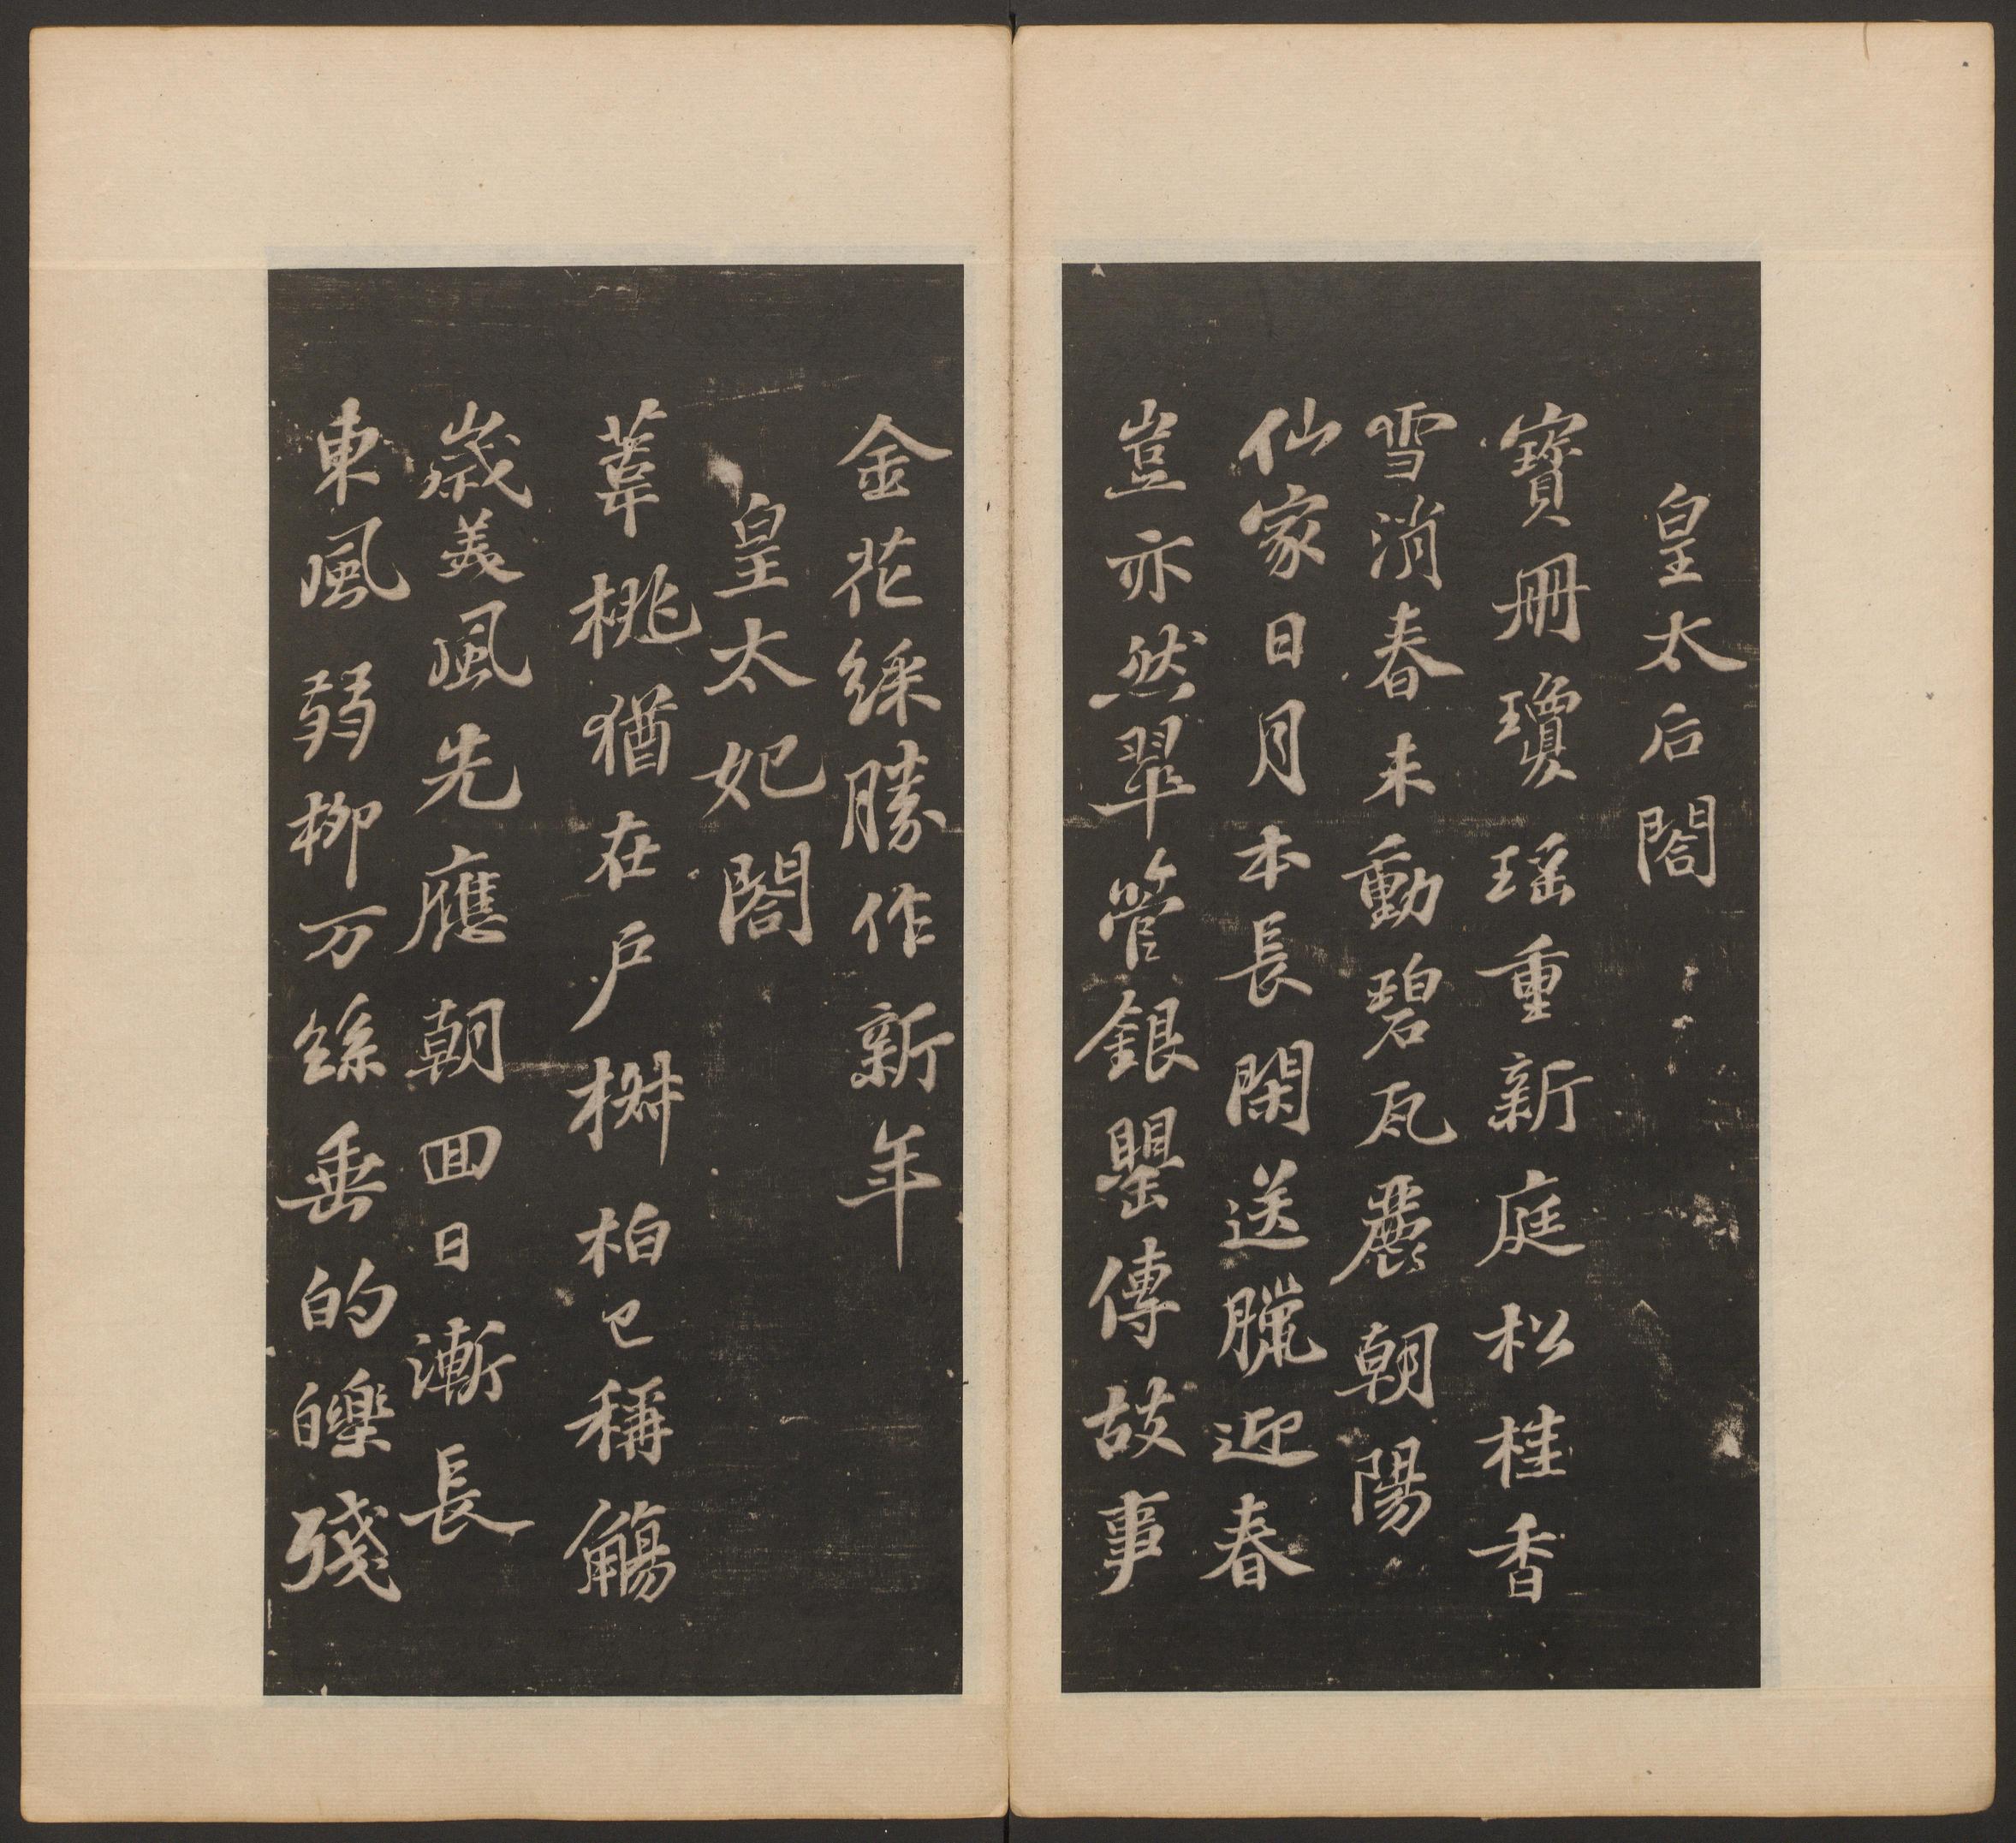 皇太后閤
寶冊瓊瑶重新庭松桂香
雪消春未動碧瓦麗朝陽
仙家日月本長閑送臘迎春
豈亦然翠管銀罌傳故事
金花綵勝作新年
皇太妃閤
葦桃猶在戶椒柏已稱觴
歲美風先應朝回日漸長
東風弱柳万絲垂的皪殘